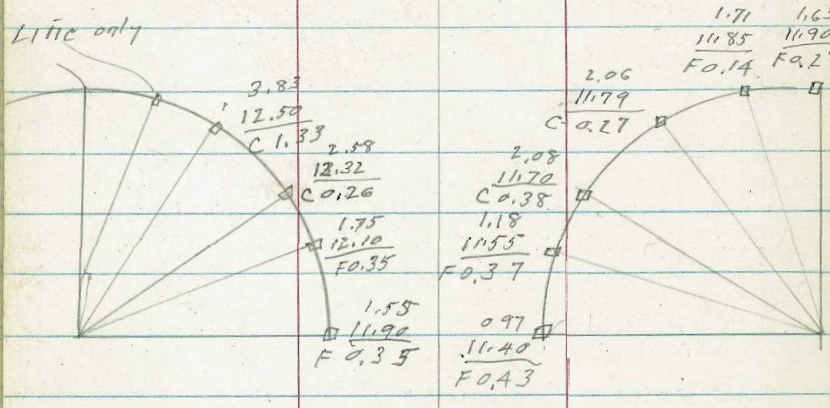 Line only
3.83
12.50
C 1.33
2.58
12.32
C 0.26
1.75
12.10
F 0.35
1.55
11.90
F 0.35
1.71
11.85
F 0.14
11.90
2.06
11.79
C 0.27
2.08
11.70
C 0.38
1.18
11.55
F 0.37
0.97
11.40
F 0.43